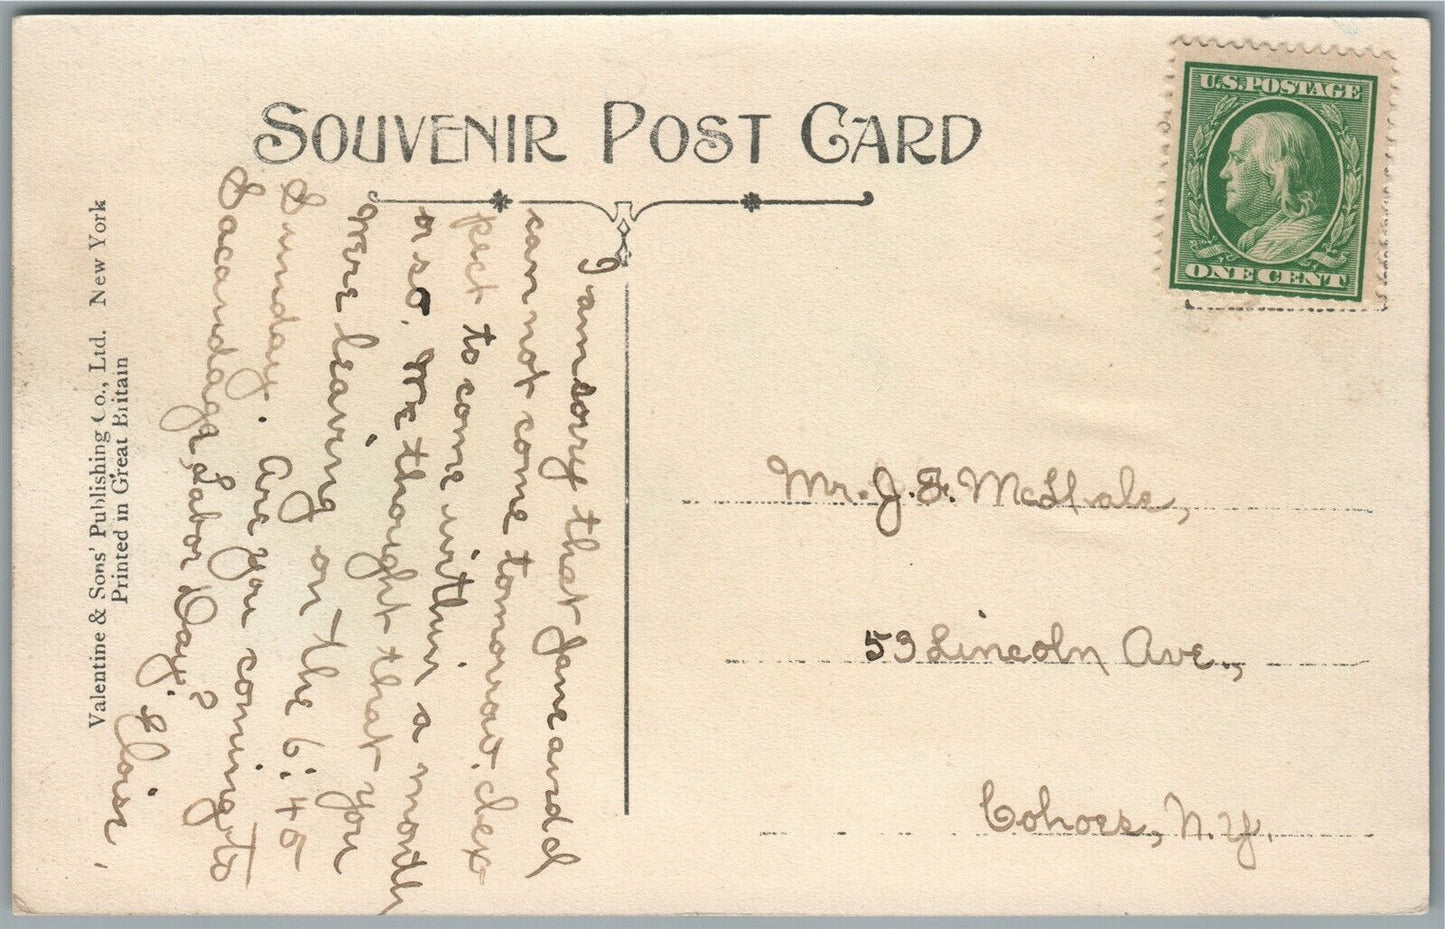 SOUVENIR POST CARD
U.S. POSTAGE
ONE CENT
Valentine & Sons' Publishing Co., Ltd. New York
Printed in Great Britain
I am sorry that Jane and I
can not come tomorrow. I ex
pect to come within a month
or so. We thought that you
were leaving on the 6:45
Sunday. Are you coming to
Sacandaga, Labor Day?
Eloise.
Mr. J. F. McHale,
53 Lincoln Ave.,
Cohoes, N.Y.